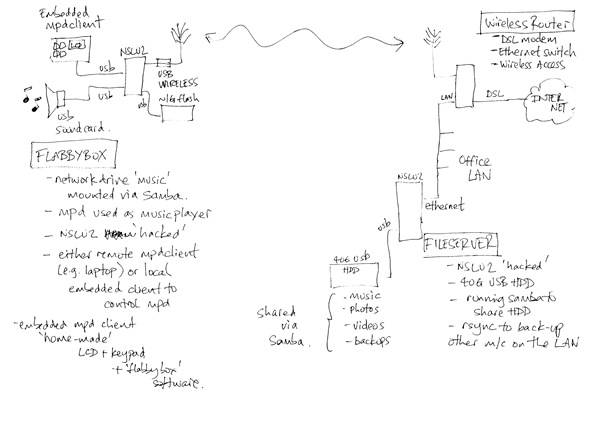 Embedded
mpdclient
LCD
NSLU2
usb
USB
WIRELESS
usb
usb
flash
usb
soundcard.
FLABBYBOX
- network drive 'music'
mounted via Samba.
- mpd used as music player
- NSLU2 'hacked'
- either remote mpdclient
(e.g. laptop) or local
embedded client to
control mpd
- embedded mpd client
'home-made'
LCD + keypad
+ 'flabbybox'
software.
Wireless Router
- DSL modem
- Ethernet switch
- Wireless Access
LAN
DSL
INTER
NET
Office
LAN
NSLU2
ethernet
usb
40G USB
HDD
Shared
via
Samba.
- music
- photos
- videos
- backups
FILESERVER
- NSLU2 'hacked'
- 40G USB HDD
- running samba to
share HDD
- rsync to back-up
other m/c on the LAN